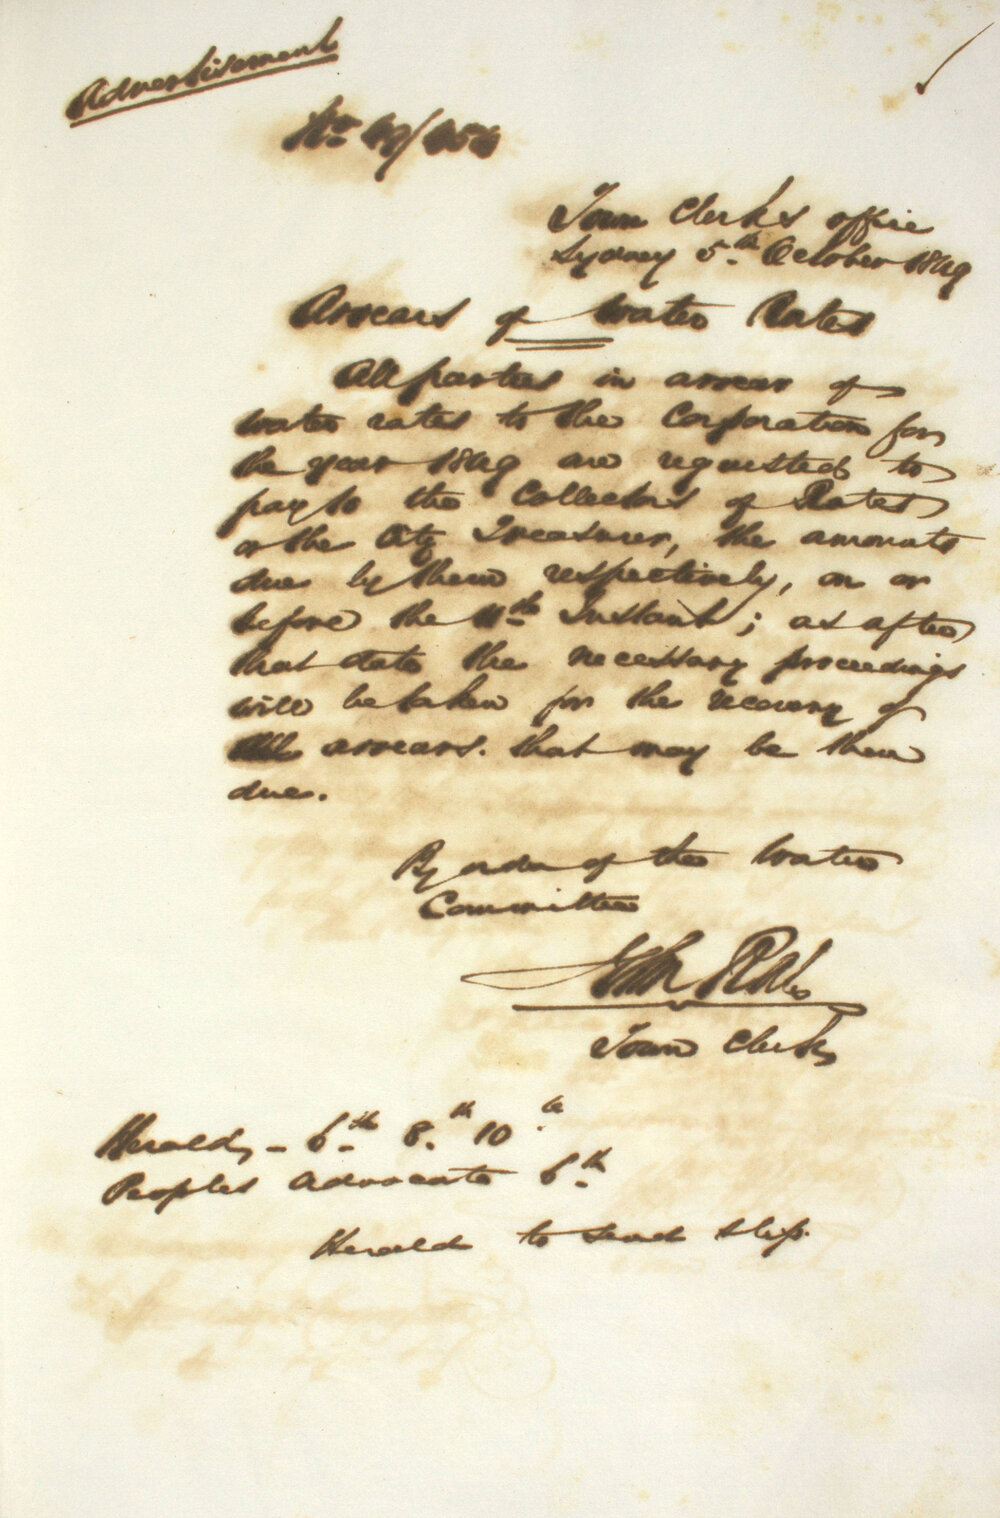 Advertisement
No 49/
Town Clerk's office
Sydney 5th October 1849
Arrears of Water Rates
All parties in arrear of
water rates to the Corporation for
the year 1849 are requested to
pay to the Collectors of Rates
or the City Treasurer, the amounts
due by them respectively, on or
before the 11th Instant; as after
that date the necessary proceedings
will be taken for the recovery of
all arrears. that may be then
due.
By order of the Water
Committee
John
Town Clerk
Herald, - 6th 8th 10th
Peoples Advocate 6th
Herald to send slip.